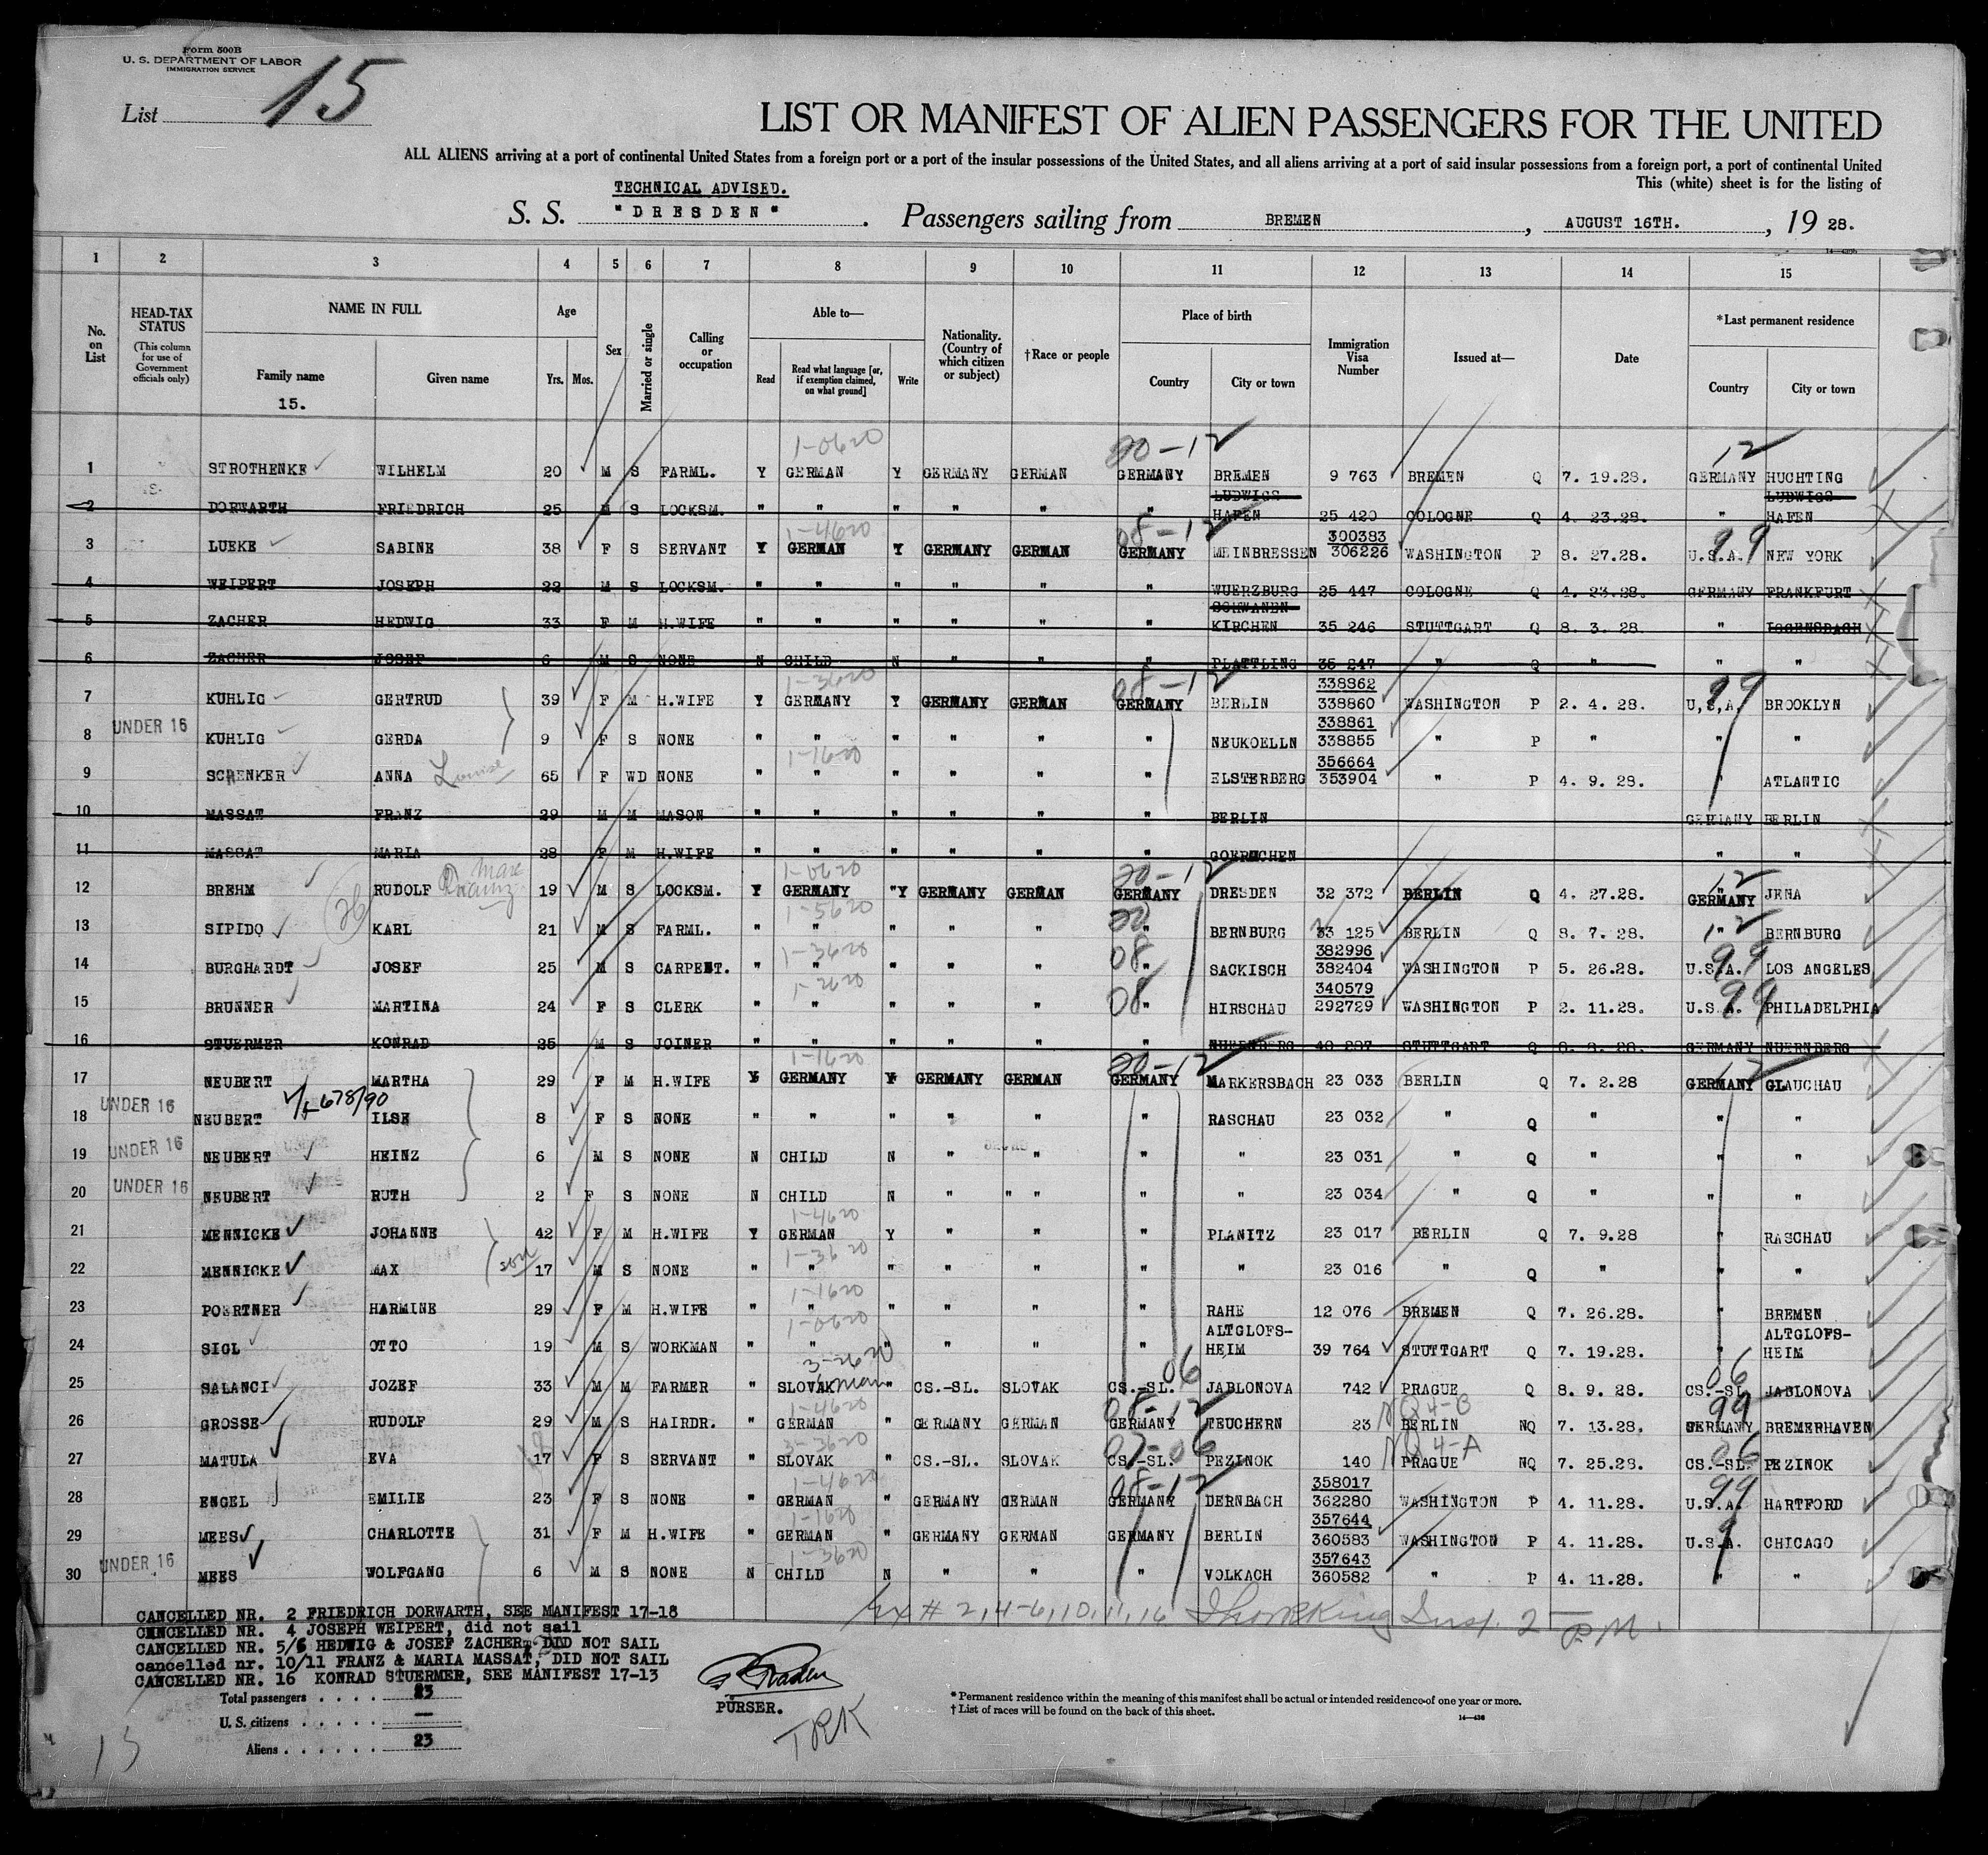 Form 500B
U. S. DEPARTMENT OF LABOR
IMMIGRATION SERVICE
List 15
LIST OR MANIFEST OF ALIEN PASSENGERS FOR THE UNITED
ALL ALIENS arriving at a port of continental United States from a foreign port or a port of the insular possessions of the United States, and all aliens arriving at a port of said insular possessions from a foreign port, a port of continental United
This (white) sheet is for the listing of
TECHNICAL ADVISED.
S. S. "DRESDEN". Passengers sailing from BREMEN, AUGUST 16TH., 19 28.
1 2 3 4 5 6 7 8 9 10 11 12 13 14 15
No. on List
HEAD-TAX STATUS
(This column for use of Government officials only)
NAME IN FULL
Family name
15.
Given name
Age
Yrs. Mos.
Sex
Married or single
Calling or occupation
Able to—
Read
Read what language [or, if exemption claimed, on what ground]
Write
Nationality. (Country of which citizen or subject)
†Race or people
Place of birth
Country
City or town
Immigration Visa Number
Issued at—
Date
*Last permanent residence
Country
City or town
1-0620 20-12 12
1 STROTHENKE WILHELM 20 M S FARML. Y GERMAN Y GERMANY GERMAN GERMANY BREMEN 9 763 BREMEN Q 7. 19.28. GERMANY HUCHTING
2 DORWARTH FRIEDRICH 25 M S LOCKSM. " " " " " " LUDWIGS HAFEN 25 420 COLOGNE Q 4. 23.28. " LUDWIGS HAFEN
1-4620 08-12 99
3 LUEKE SABINE 38 F S SERVANT Y GERMAN Y GERMANY GERMAN GERMANY MEINBRESSEN 300383 306226 WASHINGTON P 8. 27.28. U.S.A. NEW YORK
4 WEIPERT JOSEPH 22 M S LOCKSM. " " " " " " WUERZBURG 25 447 COLOGNE Q 4. 23.28. GERMANY FRANKFURT
5 ZACHER HEDWIG 33 F M H.WIFE " " " " " " SCHWANEN KIRCHEN 35 246 STUTTGART Q 8. 3. 28. "
6 ZACHER JOSEF 6 M S NONE N CHILD N " " " PLATTLING 35 247 " Q " " "
1-3620 08-12 99
7 KUHLIG GERTRUD 39 F M H.WIFE Y GERMANY Y GERMANY GERMAN GERMANY BERLIN 338862 338860 WASHINGTON P 2. 4. 28. U,S,A, BROOKLYN
UNDER 16
8 KUHLIG GERDA 9 F S NONE " " " " " " NEUKOELLN 338861 338855 " P " " "
1-1620
9 SCHENKER ANNA Louise 65 F WD NONE " " " " " " ELSTERBERG 356664 353904 " P 4. 9. 28. " ATLANTIC
10 MASSAT FRANZ 29 M M MASON " " " " " " BERLIN GERMANY BERLIN
11 MASSAT MARIA 28 F M H.WIFE " " " " " " " "
1-0620 20-12 12
12 BREHM RUDOLF 19 M S LOCKSM. Y GERMANY "Y GERMANY GERMAN GERMANY DRESDEN 32 372 BERLIN Q 4. 27.28. GERMANY JENA
1-5620 20 12
13 SIPIDO KARL 21 M S FARML. " " " " " " BERNBURG 33 125 BERLIN Q 8. 7. 28. " BERNBURG
1-3620 08 99
14 BURGHARDT JOSEF 25 M S CARPENT. " " " " " " SACKISCH 382996 382404 WASHINGTON P 5. 26.28. U.S.A. LOS ANGELES
1-2620 08 99
15 BRUNNER MARTINA 24 F S CLERK " " " " " " HIRSCHAU 340579 292729 WASHINGTON P 2. 11.28. U.S.A. PHILADELPHIA
16 STUERMER KONRAD 25 M S JOINER " " " " " " NUERNBERG STUTTGART Q 8. 8. 28. GERMANY NUERNBERG
1-1620 20-12 12
17 NEUBERT MARTHA 29 F M H.WIFE Y GERMANY Y GERMANY GERMAN GERMANY MARKERSBACH 23 033 BERLIN Q 7. 2.28 GERMANY GLAUCHAU
UNDER 16
18 NEUBERT ILSE 8 F S NONE " " " " " " RASCHAU 23 032 " Q " " "
UNDER 16
19 NEUBERT HEINZ 6 M S NONE N CHILD N " " " " 23 031 " Q " " "
UNDER 16
20 NEUBERT RUTH 2 F S NONE N CHILD N " " " " " 23 034 " Q " " "
1-4620
21 MENNICKE JOHANNE 42 F M H.WIFE Y GERMAN Y " " " PLANITZ 23 017 BERLIN Q 7. 9.28 " RASCHAU
1-3620
22 MENNICKE MAX son 17 M S NONE " " " " " " " 23 016 " Q " " "
1-1620
23 POERTNER HARMINE 29 F M H.WIFE " " " " " " RAHE 12 076 BREMEN Q 7. 26.28. " BREMEN
1-0620
24 SIGL OTTO 19 M S WORKMAN " " " " " " ALTGLOFS-HEIM 39 764 STUTTGART Q 7. 19.28. " ALTGLOFS-HEIM
3-2620 06 06
25 SALANCI JOZEF 33 M M FARMER " SLOVAK " CS.-SL. SLOVAK CS.-SL. JABLONOVA 742 PRAGUE Q 8. 9. 28. CS.-SL. JABLONOVA
1-4620 08-12 NQ4-B 99
26 GROSSE RUDOLF 29 M S HAIRDR. " GERMAN " GERMANY GERMAN GERMANY TEUCHERN 23 BERLIN NQ 7. 13.28. GERMANY BREMERHAVEN
3-3620 07-06 NQ4-A 06
27 MATULA EVA 17 F S SERVANT " SLOVAK " CS.-SL. SLOVAK CS.-SL. PEZINOK 140 PRAGUE NQ 7. 25.28. CS.-SL. PEZINOK
1-4620 08-12 99
28 ENGEL EMILIE 23 F S NONE " GERMAN " GERMANY GERMAN GERMANY DERNBACH 358017 362280 WASHINGTON P 4. 11.28. U.S.A. HARTFORD
1-1620
29 MEES CHARLOTTE 31 F M H.WIFE " GERMAN " GERMANY GERMAN GERMANY BERLIN 357644 360583 WASHINGTON P 4. 11.28. U.S.A. CHICAGO
UNDER 16 1-3620
30 MEES WOLFGANG 6 M S NONE N CHILD N " " " VOLKACH 357643 360582 " P 4. 11.28. " "
# 2, 4-6, 10, 11, 16 Insp. 2 P.M.
CANCELLED NR. 2 FRIEDRICH DORWARTH, SEE MANIFEST 17-18
CANCELLED NR. 4 JOSEPH WEIPERT, did not sail
CANCELLED NR. 5/6 HEDWIG & JOSEF ZACHER, DID NOT SAIL
cancelled nr. 10/11 FRANZ & MARIA MASSAT, DID NOT SAIL
CANCELLED NR. 16 KONRAD STUERMER, SEE MANIFEST 17-13
Total passengers . . . . 23
U. S. citizens . . . . . —
Aliens . . . . . . 23
PURSER.
TRK
* Permanent residence within the meaning of this manifest shall be actual or intended residence of one year or more.
† List of races will be found on the back of this sheet.
14—436